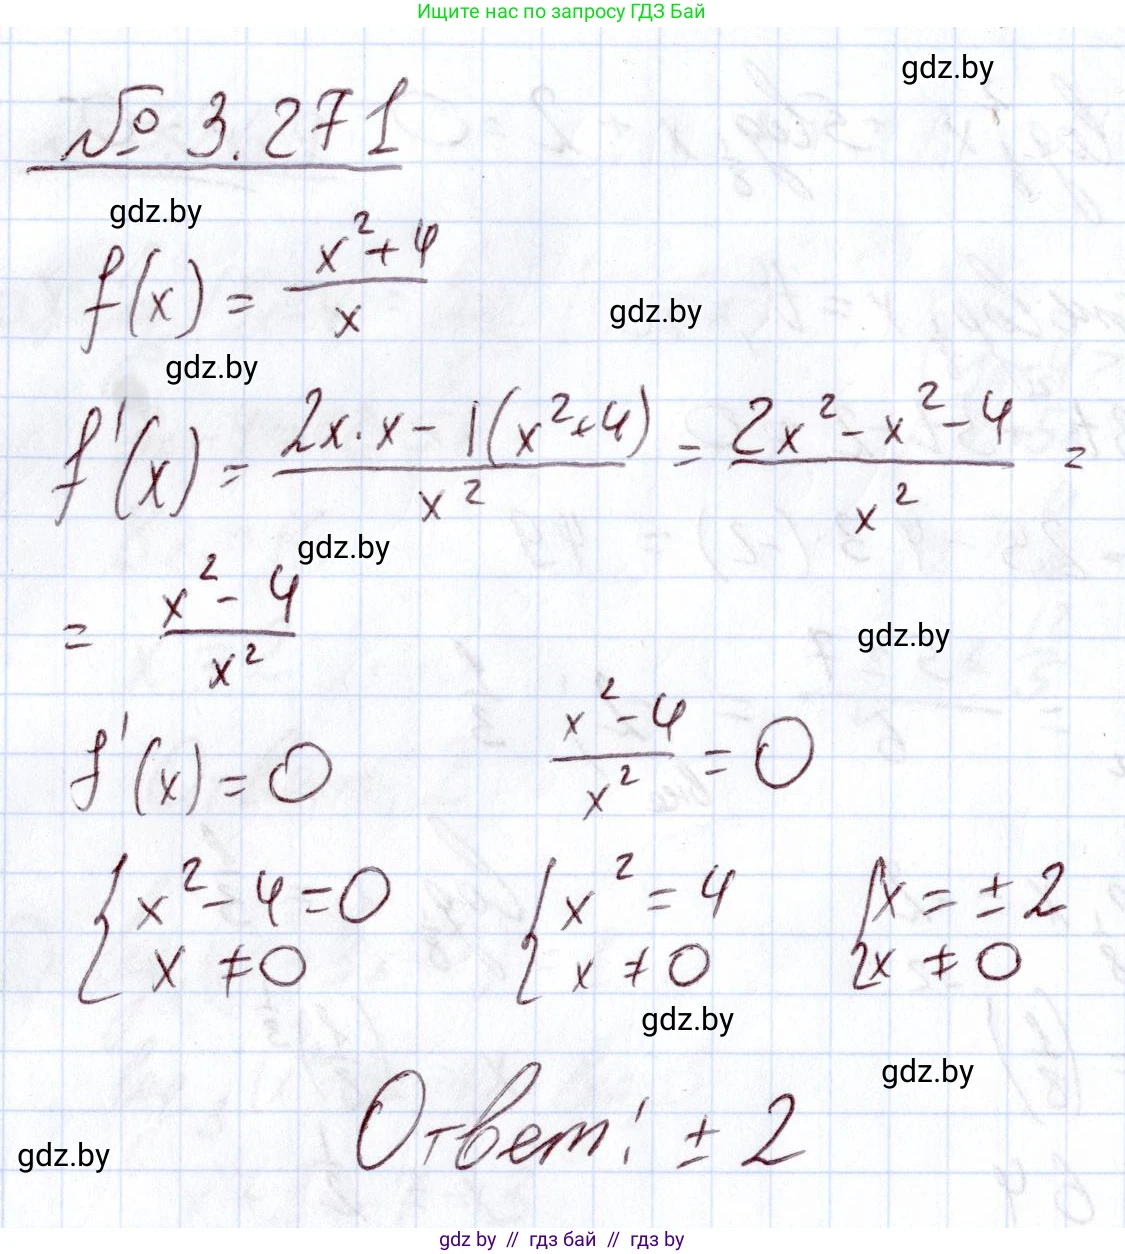 Ищите нас по запросу ГДЗ Бай
gdz.by
№ 3.271
gdz.by
f(x) = (x² + 4) / x
gdz.by
gdz.by
f'(x) = (2x · x - 1(x² + 4)) / x² = (2x² - x² - 4) / x² =
gdz.by
= (x² - 4) / x²
gdz.by
f'(x) = 0 (x² - 4) / x² = 0
{ x² - 4 = 0 { x² = 4 { x = ± 2
x ≠ 0 x ≠ 0 x ≠ 0
gdz.by
gdz.by
Ответ: ± 2
gdz.by
gdz by // гдз бай // гдз by